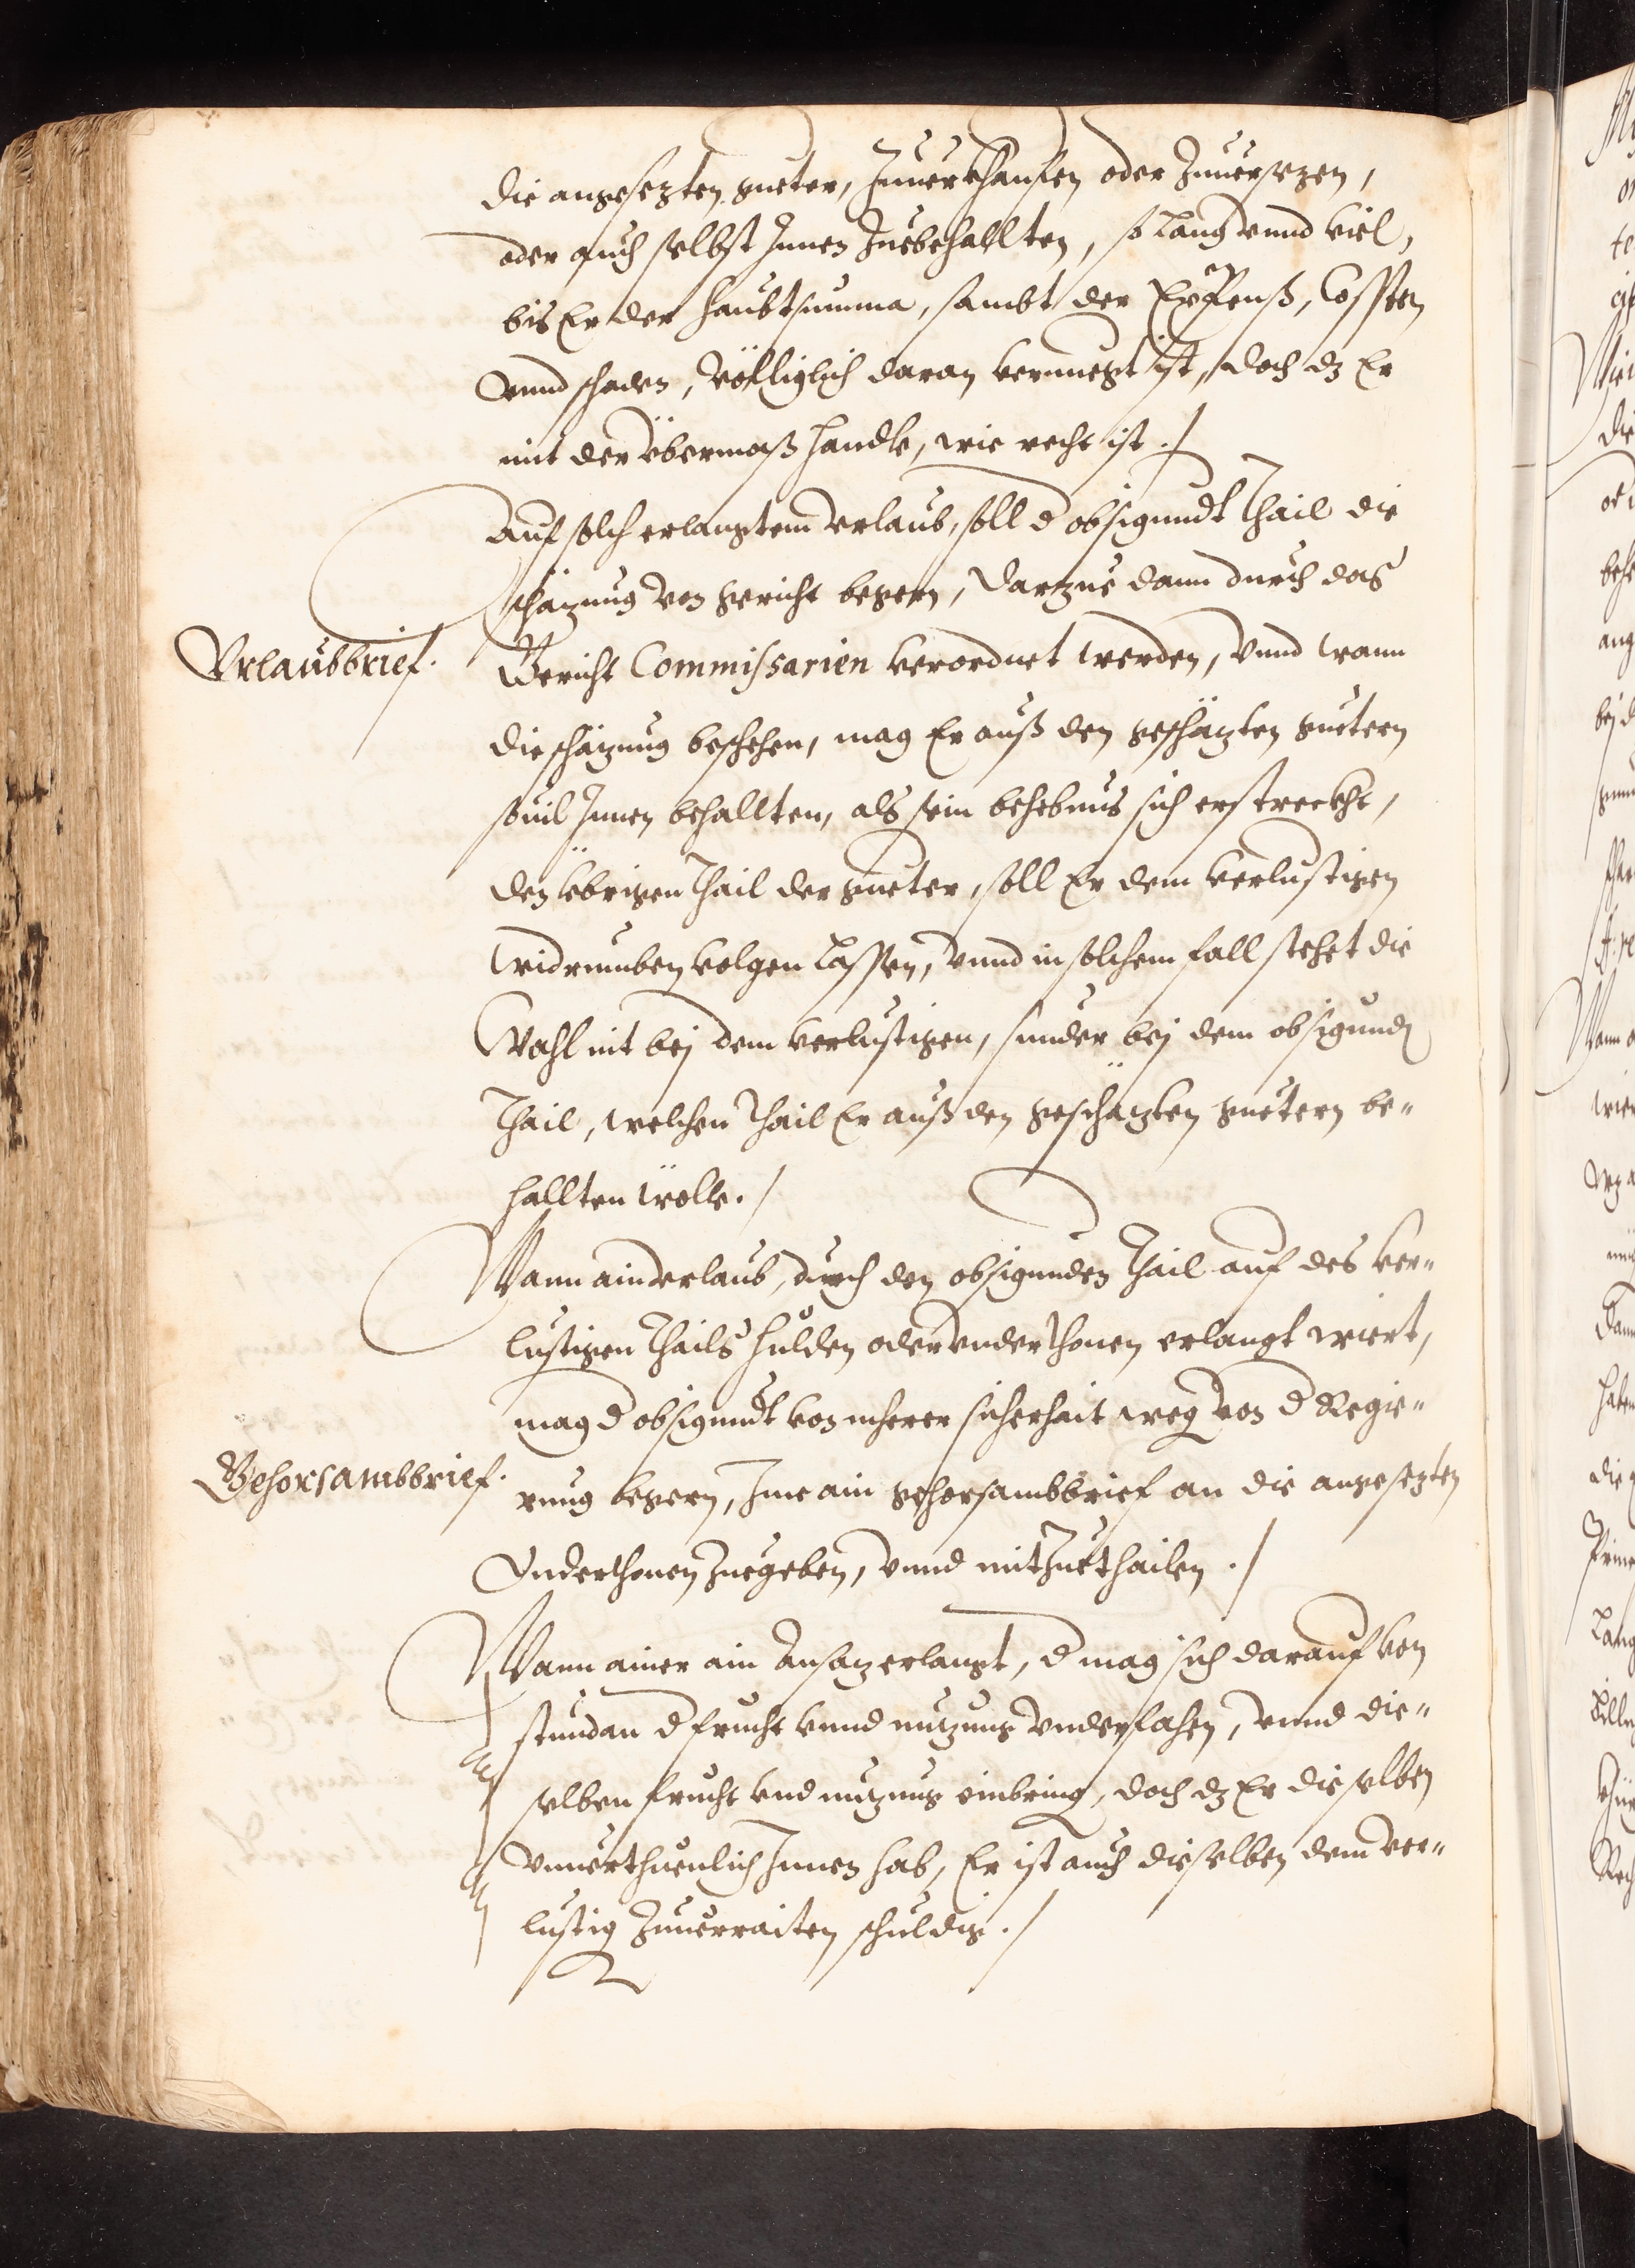 die angesezten guetter, Zuuerkhauffen oder Zuuersezen,
oder auch selbst Innen Zuebehallten, so lang vnnd viel,
bis Er der haubtsumma, sambt der Expenß, Cossten
vnnd schaden, völligclich daran vernuegt ist, doch dz Er
mit der übermaß handle, wie recht ist ./
Auf solch erlangtem Vrlaub, soll d obsigundt thail die
schäzung von gericht begern, darzue dann durch das
Gericht Commissarien verordnet werden, vnnd wann
Vrlaubbrief.
die schäzung beschehen, mag Er auß den geschäzten guetern
souil Innen behallten, als sein behebnus sich erstreckht,
den übrigen thail der gueter, soll Er dem verlustigen
widrumben volgen lassen, vnnd in solchem fall stehet die
Wahl nit bej dem verlustigen, sunder bej dem obsigunden
thail, welchen thail Er auß den geschäzten guetern be„
hallten wölle ./
Wann ain Vrlaub, durch den obsigunden thail auf des ver„
lustigen thails hulden oder vnderthonen erlangt wiert,
mag d obsigundt von merer sicherhait weg von d Regie„
Gehorsambbrief.
rung begern, Ime ain gehorsambbrief an die angesezten
Vnderthonen zuegeben, vnnd mitzuethailen ./
Wann ainer ain Ansaz erlangt, d mag sich darauf von
stundan d frucht vnnd nuzung vnderfahen, vnnd die„
selben frucht vnd nuzung einbring, doch dz Er dieselben
vnuerthuenlich Innen hab, Er ist auch dieselben dem ver„
lustig zuuerraiten schuldig ./